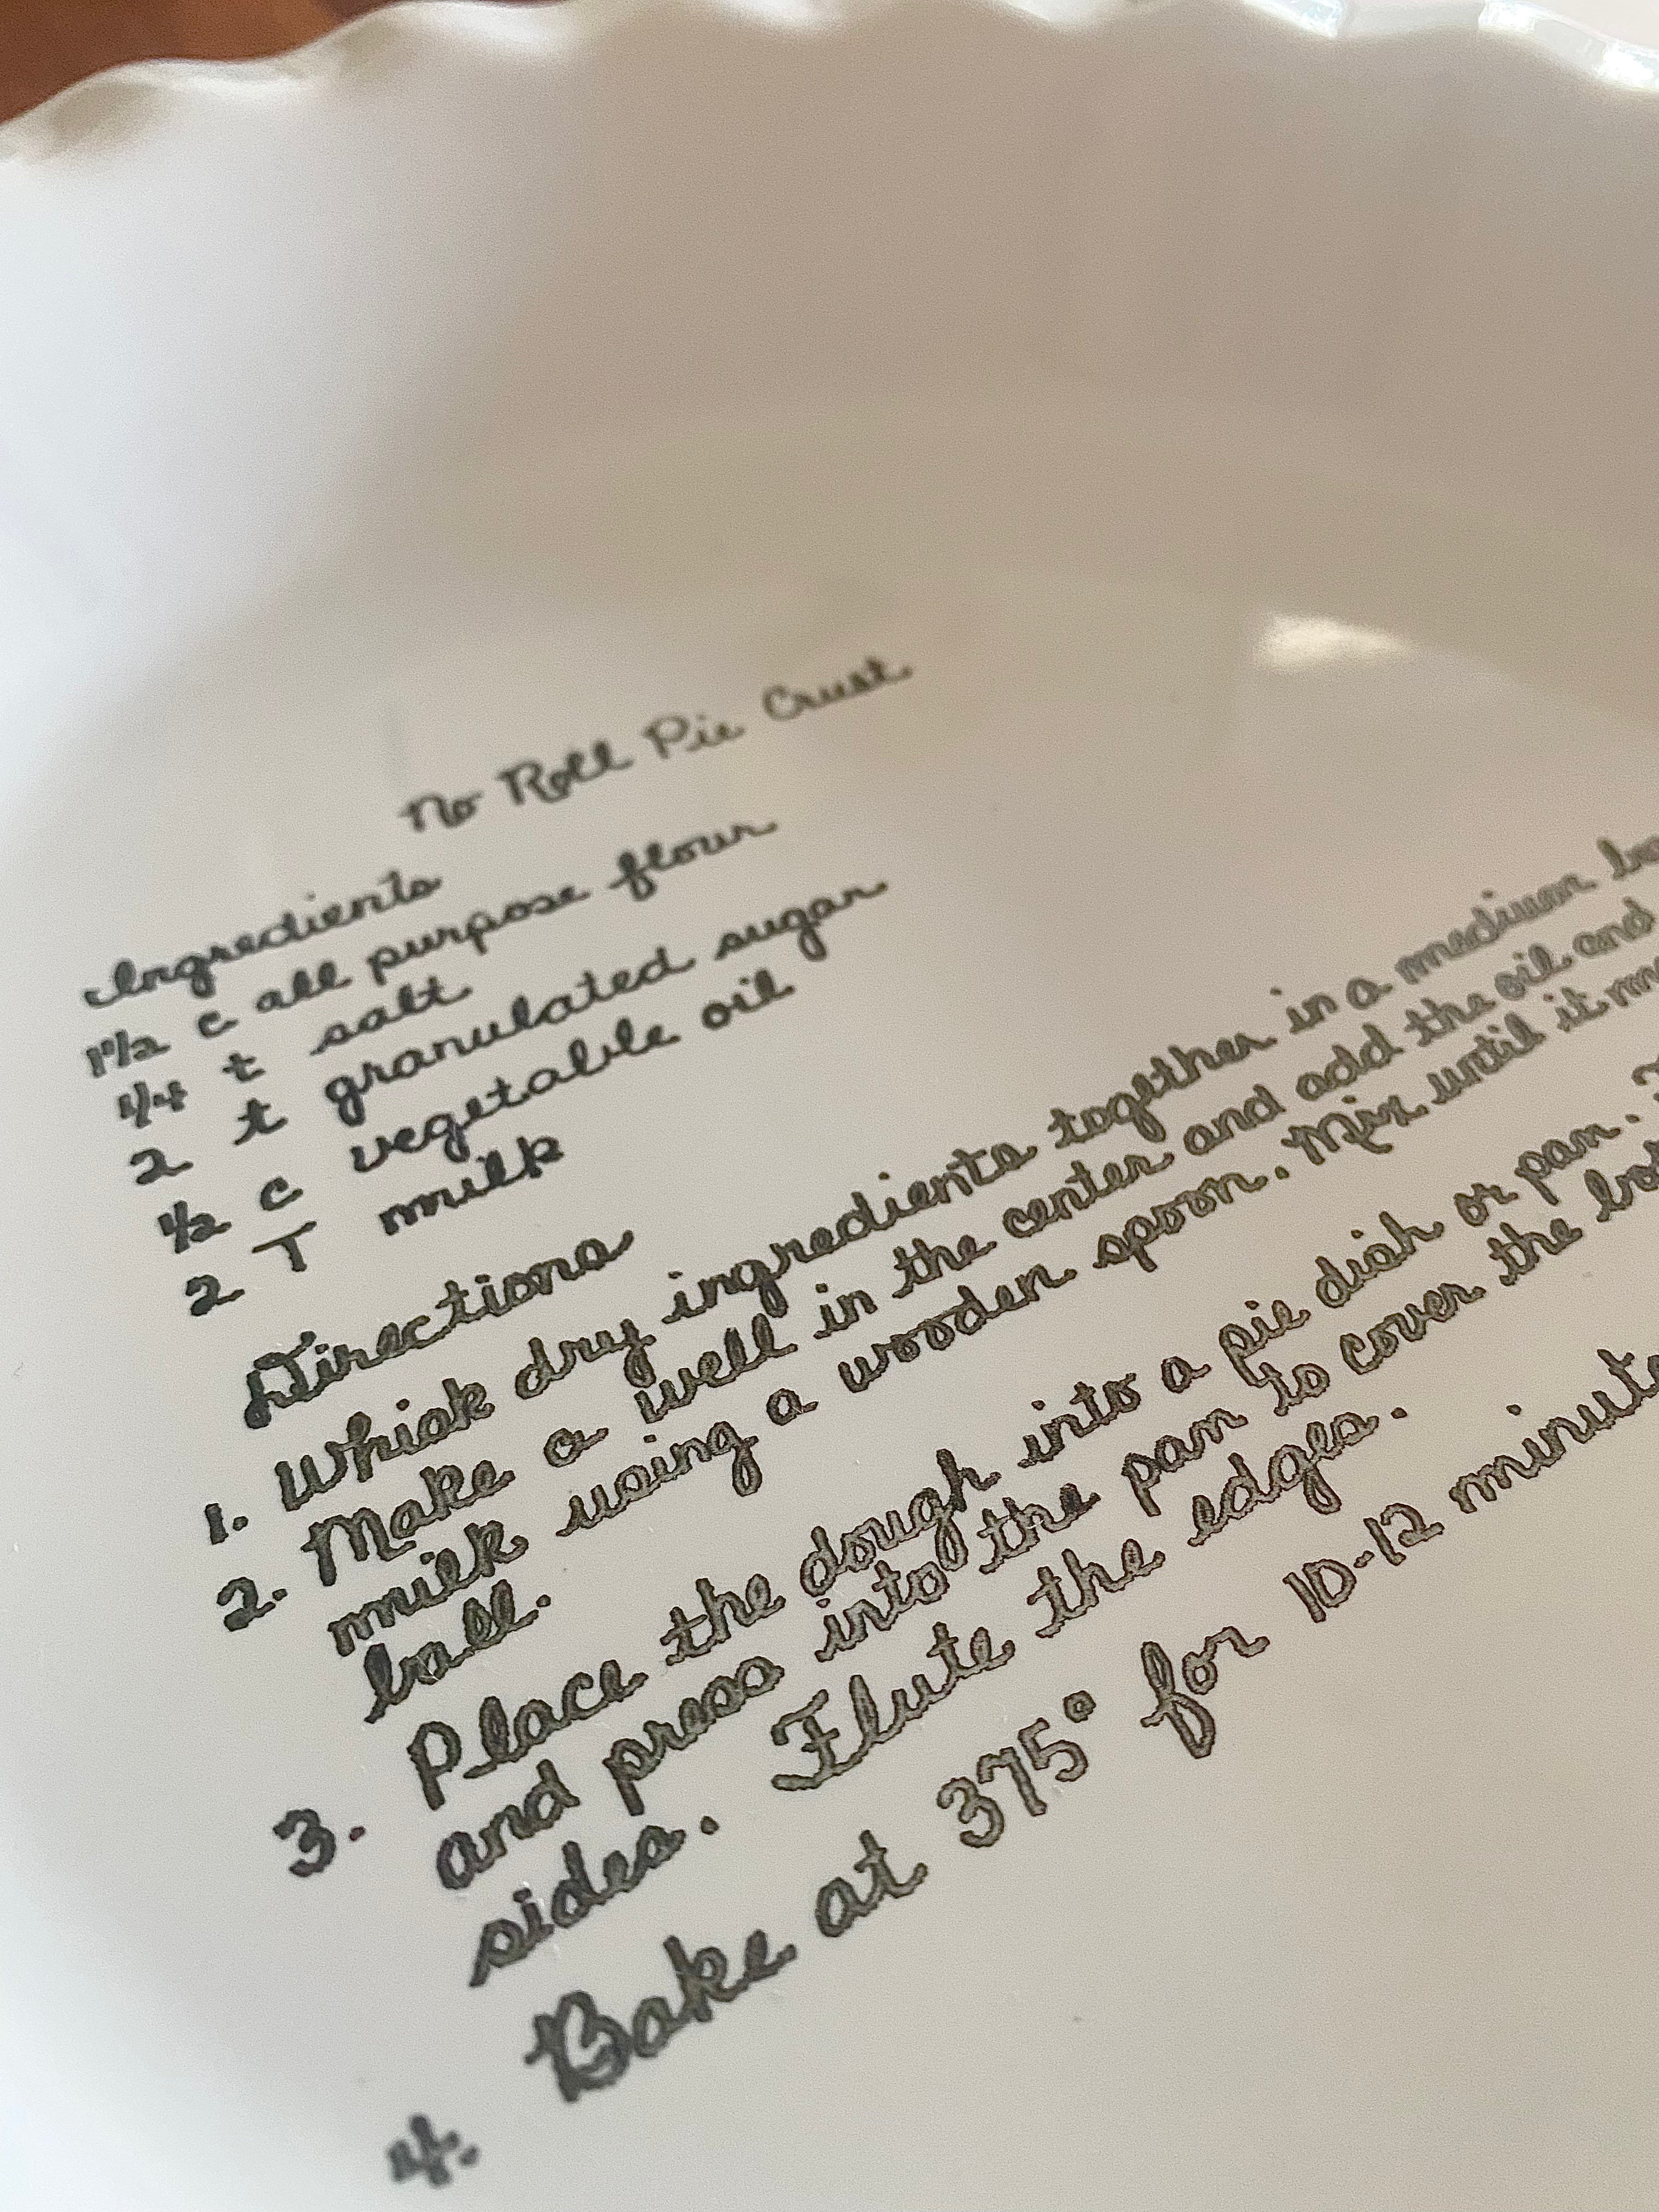 No Roll Pie Crust
Ingredients
1 1/2 c all purpose flour
1/4 t salt
2 t granulated sugar
1/2 c vegetable oil
2 T milk
Directions
1. Whisk dry ingredients together in a medium
2. Make a well in the center and add the oil and
milk using a wooden spoon. Mix until it
ball.
3. Place the dough into a pie dish or pan.
and press into the pan to cover the
sides. Flute the edges.
4. Bake at 375° for 10-12